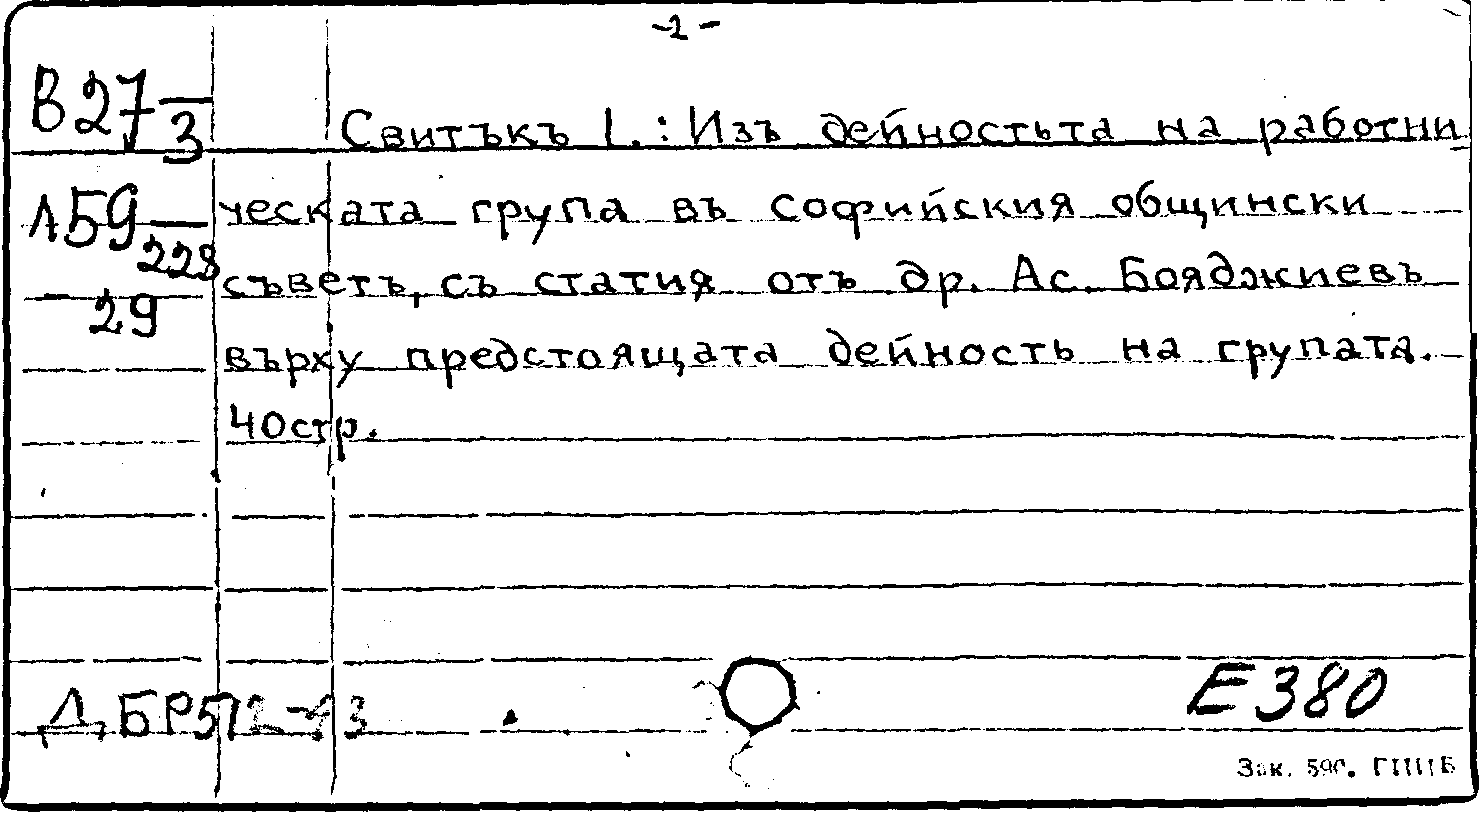 -2-
В 27/3 Свитъкъ I. : Изъ дейностьта на работни
Л59/228 ческата група въ софийския общински
29 съветъ, съ статия отъ др. Ас. Бояджиевъ
върху предстоящата дейность на групата.
40стр.
Е380
Зак. 590. ГПШБ